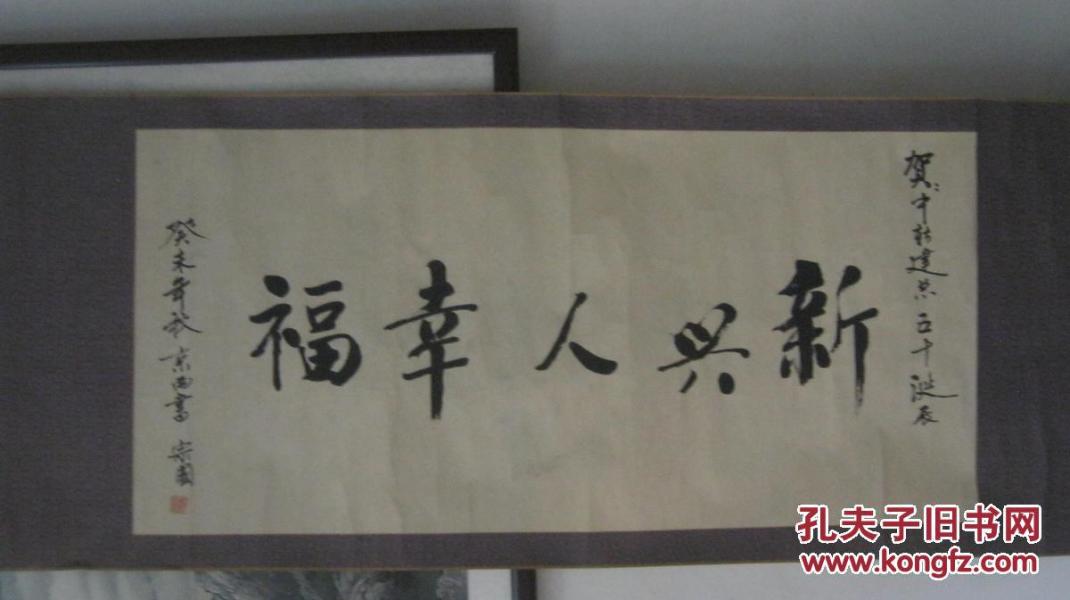 贺:中新建总五十诞辰
新兴人幸福
癸未年秋京西书宗国
孔夫子旧书网
www.kongfz.com